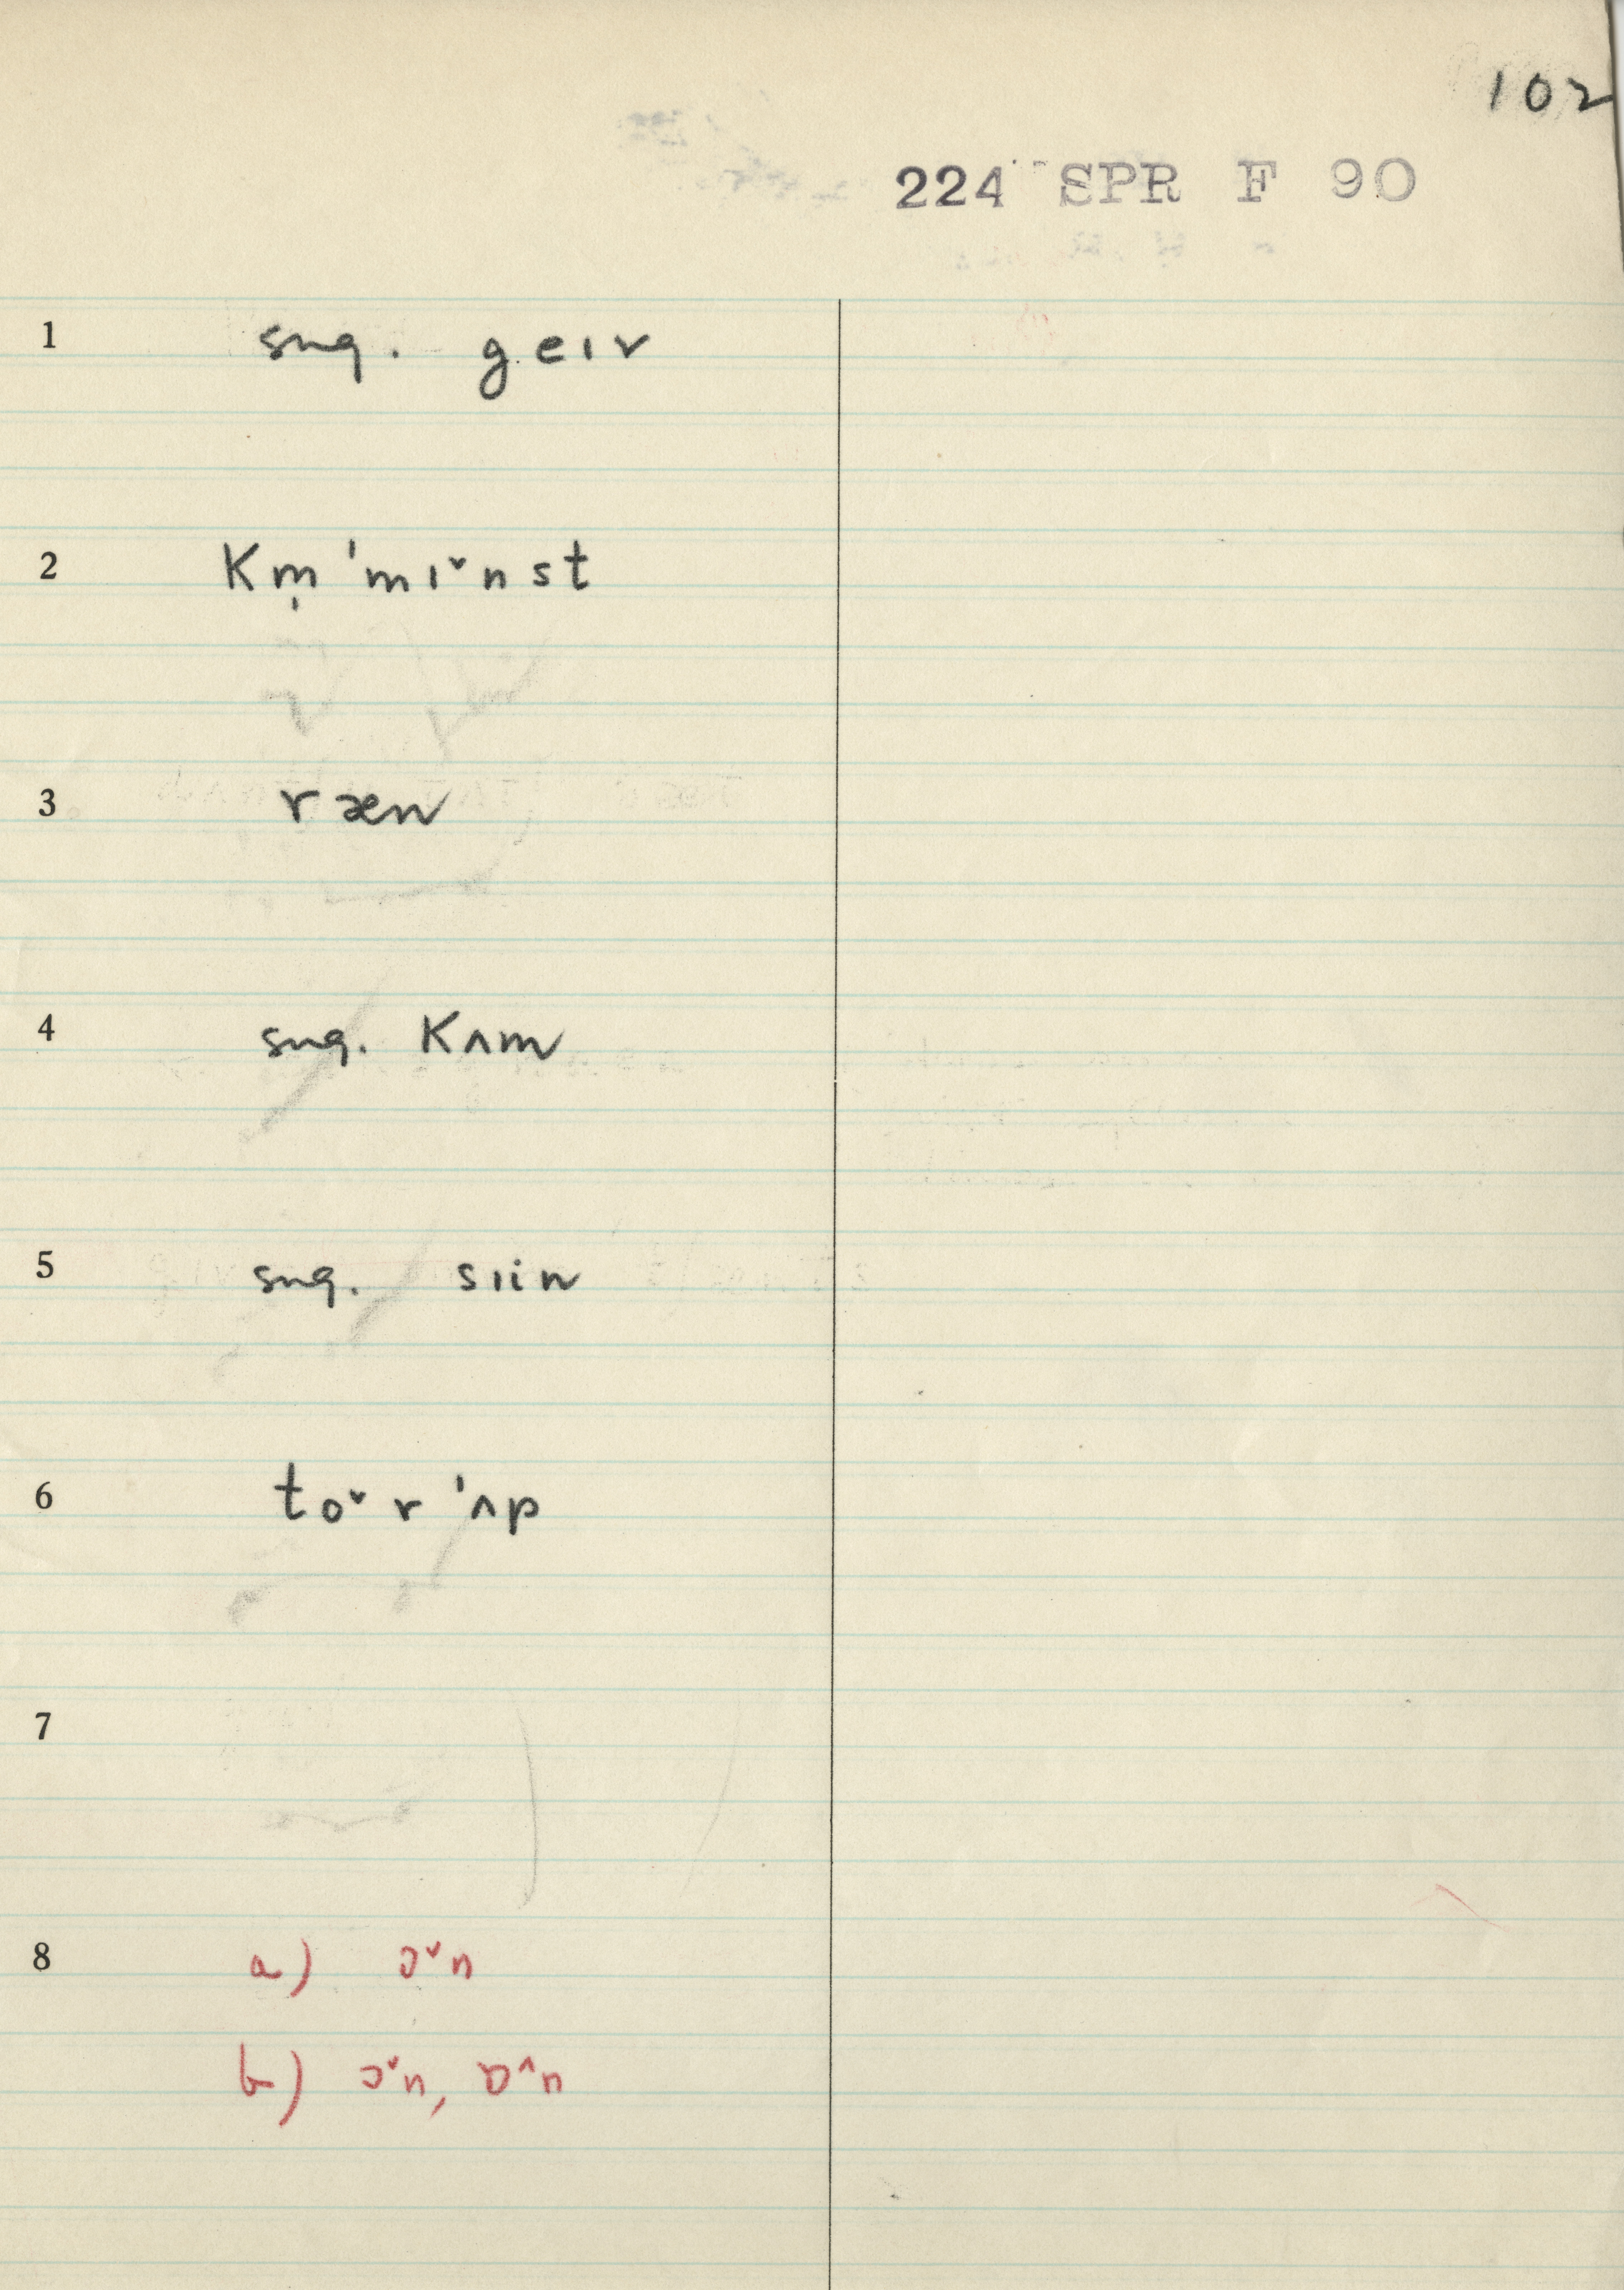 102
224 SPR F 90
1 sug. geɪv
2 km̩ 'mɪ˅nst
3 ræn
4 sug. kʌm
5 sug. sɪin
6 to˅r 'ʌp
7
8 a) ɔ˅n
b) ɔ˅n, ɒ^n